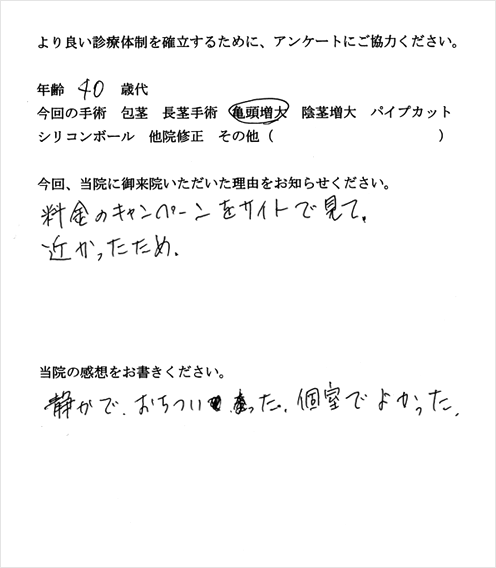 より良い診療体制を確立するために、アンケートにご協力ください。
年齢 40 歳代
今回の手術 包茎 長茎手術 亀頭増大 陰茎増大 パイプカット
シリコンボール 他院修正 その他（ ）
今回、当院に御来院いただいた理由をお知らせください。
料金のキャンペーンをサイトで見て。
近かったため。
当院の感想をお書きください。
静かで、おちつい った。個室でよかった。